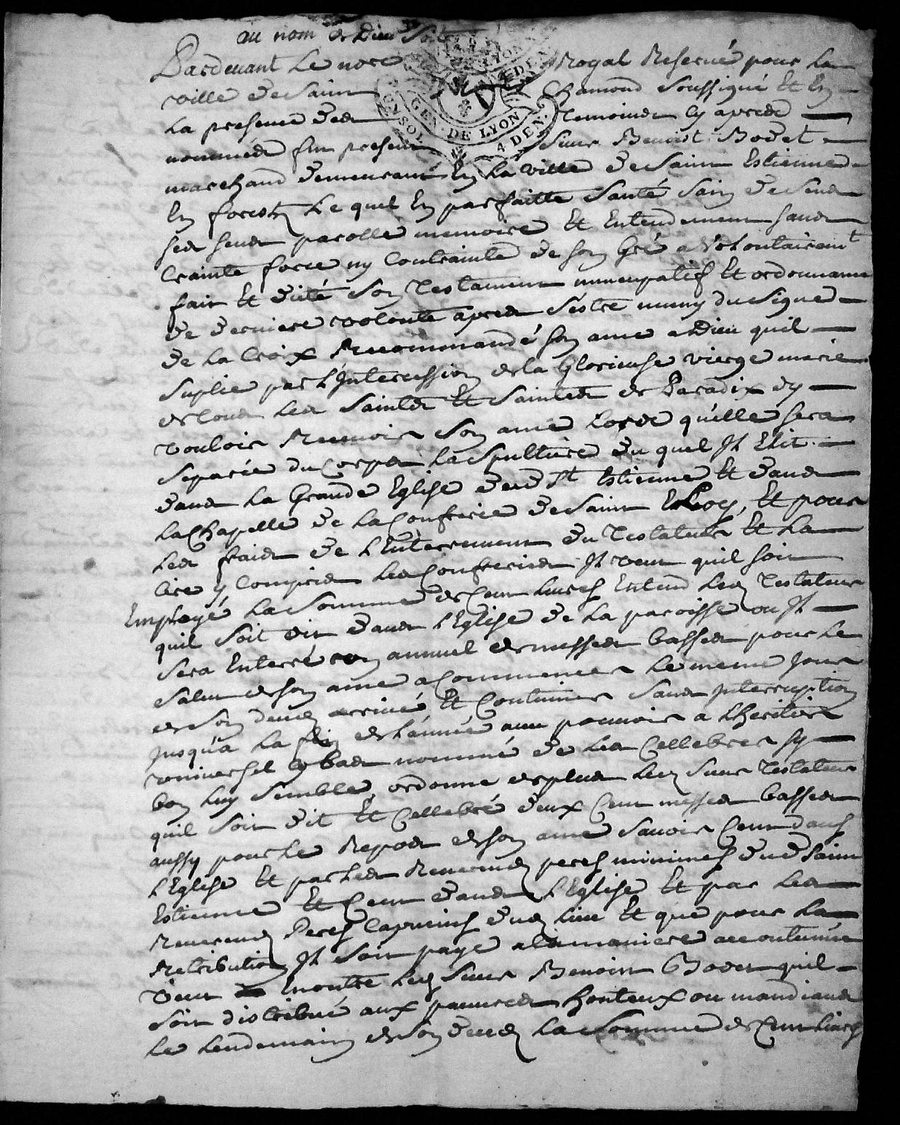 au nom de Dieu soit
Pardevant Le nore Royal Reservé pour la
ville de Saint Chamond soussigné Et En
La presence des temoins cy apres
nommes fut present Sieur Benoist Bodet
marchand demeurant En La ville de Saint Estienne
En forest Le quel En parfaitte santé sain de sens
ses sens parolle memoire Et Entendement sans
crainte force ny Contrainte de son Gré a volontairemt
fait Et dicté son Testament nuncupatif Et ordonnance
de derniere volonté apres s'estre muny du signe
de La Croix Recommandé son ame a Dieu quil
suplie par l'Intercession de la Glorieuse vierge marie
de tous Les Saints Et Saintes de Paradix d'y
vouloir Recevoir son ame Lorse qu'elle sera
separée du Corps La sepulture du quel Il Elit
dans La Grande Eglise dud St Estienne Et dans
La Chapelle de La Confrerie de Saint Eloy, Et pour
Les frais de l'Enterrement du Testateur Et La
cire y Compris Les Confreries Il veut quil soit
Employé La somme de Cent Livres Entend Led Testateur
quil soit dit dans l'Eglise de La paroisse ou Il
sera Enterré un annuel de messes basses pour Le
salut de son ame a Commencer Le meme Jour
de son deces arrivé Et Continuer sans Interruption
Jusqu'a La fin de l'année au pouvoir a Lheritier
universel cy bas nommé de Les Cellebrer sy
bon Luy semble, ordonne de plus Led Sieur Testateur
quil soit dit Et Cellebré deux Cent messes basses
aussy pour Le Repos de son ame savoir Cent dans
l'Eglise Et par Les Reverends peres minimes dud Saint
Estienne Et Cent dans l'Eglise Et par Les
Reverends Peres Capucins dud Lieu Et que pour La
Retribution Il soit payé a la maniere accoutumée
veut outre Led Sieur Benoist Bodet quil
soit distribué aux pauvres honteux ou mandians
Le Lendemain de son deces La somme de Cent Livres
GEN. DE LYON
4 DEN.